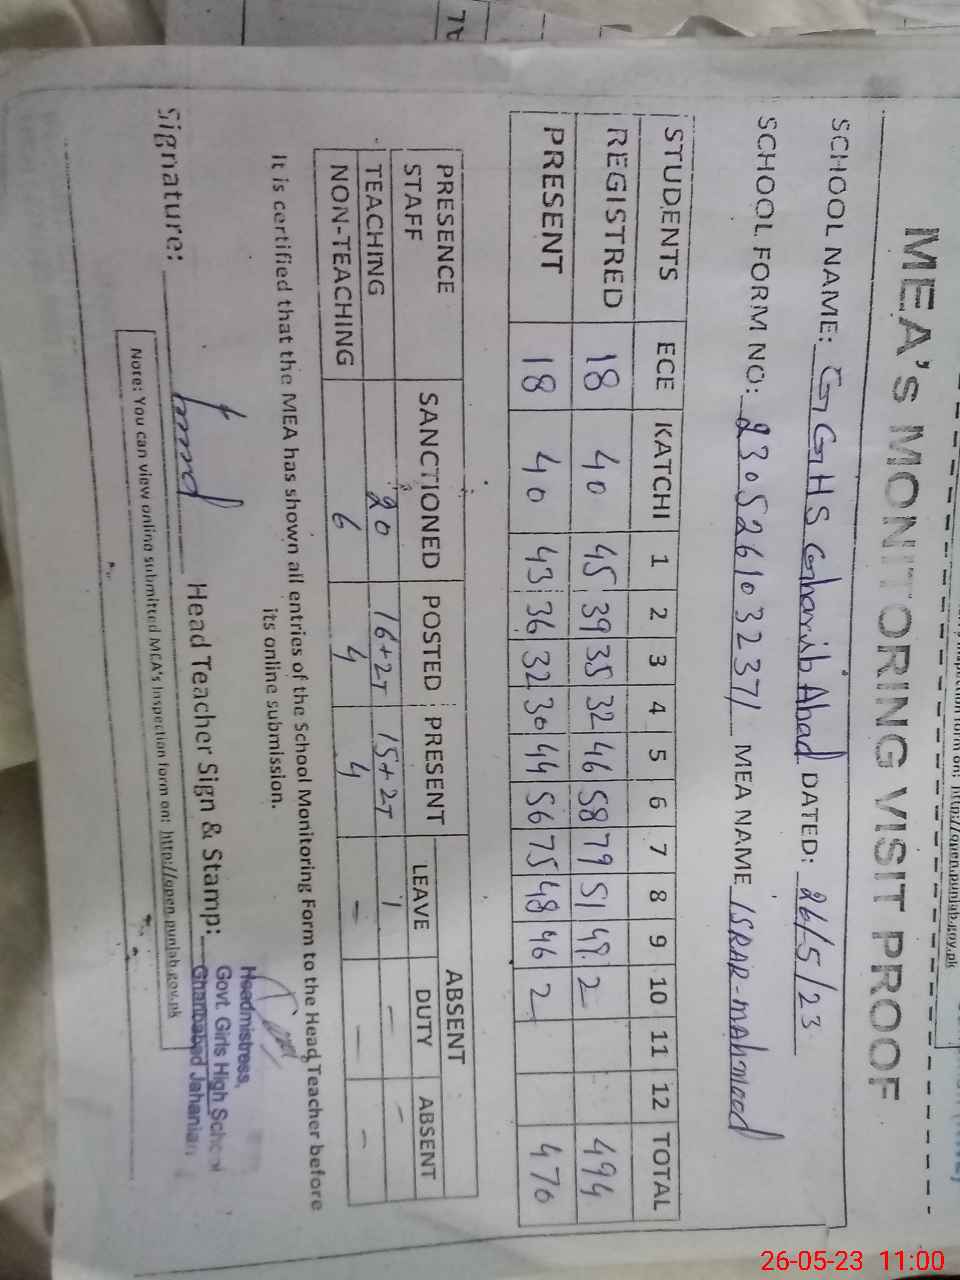 MEA'S MONITORING VISIT PROOF
SCHOOL NAME: GGHS Gharib Abad DATED: 26/5/23
SCHOOL FORM NO: 23052610 3237/ MEA NAME ISRAR-MAHMOOD
STUDENTS ECE KATCHI 1 2 3 4 5 6 7 8 9 10 11 12 TOTAL
REGISTRED 18 40 45 39 35 32 46 58 79 51 49 2 494
PRESENT 18 40 43 36 32 30 44 56 75 48 46 2 470
PRESENCE STAFF SANCTIONED POSTED PRESENT ABSENT
LEAVE DUTY ABSENT
TEACHING 20 16+2T 15+2T 1 - -
NON-TEACHING 6 4 4 - - -
It is certified that the MEA has shown all entries of the School Monitoring Form to the Head Teacher before
its online submission.
Signature: Head Teacher Sign & Stamp:
Headmistress,
Govt. Girls High School
Gharibabad Jahanian
Note: You can view online submitted MCA's Inspection form on: http://open.punjab.gov.pk
26-05-23 11:00